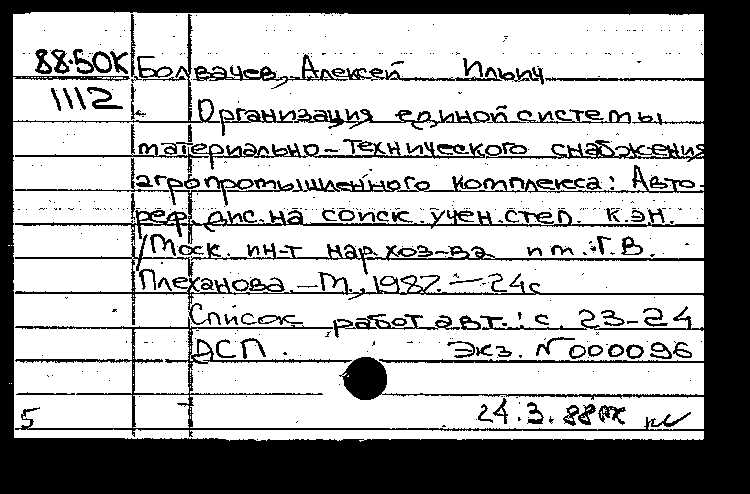 88-50К Болвачев, Алексей Ильич
1112 Организация единой системы
материально-технического снабжения
агропромышленного комплекса: Авто-
реф. дис. на соиск. учен. степ. к.эн.
/Моск. ин-т нар. хоз-ва им. Г.В.
Плеханова. - М., 1987. - 24с
Список работ авт.: с. 23-24
ДСП. Экз. N000096
5 24.3.88